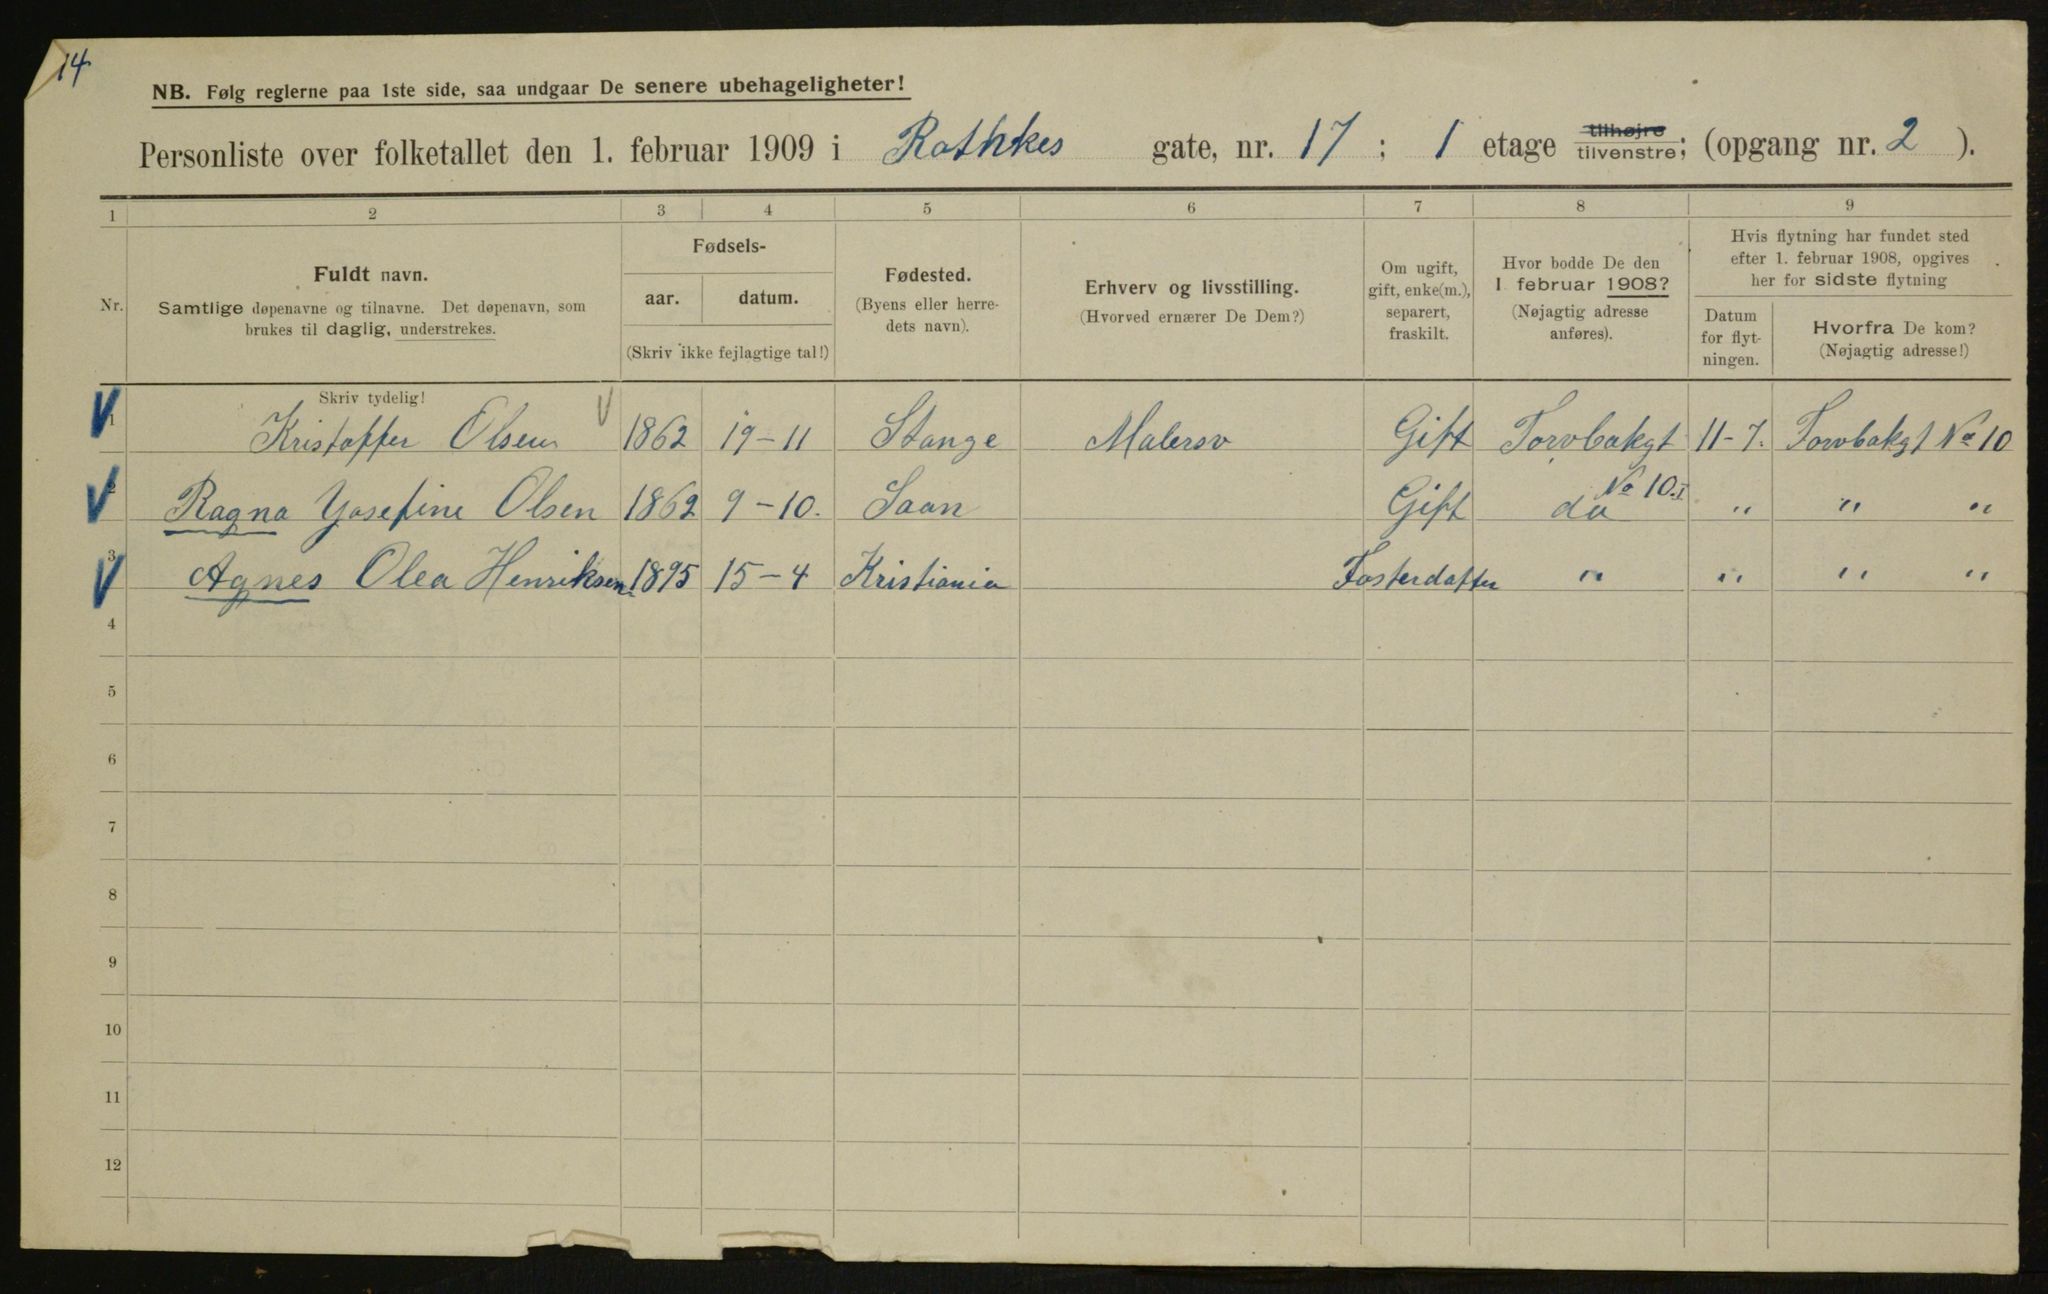 14
NB. Følg reglerne paa 1ste side, saa undgaar De senere ubehageligheter!
Personliste over folketallet den 1. februar 1909 i Rathkes gate, nr. 17 ; 1 etage tilhøjre tilvenstre; (opgang nr. 2 ).
1 2 3 4 5 6 7 8 9
Nr.
Fuldt navn.
Samtlige døpenavne og tilnavne. Det døpenavn, som
brukes til daglig, understrekes.
Fødsels-
aar. datum.
(Skriv ikke fejlagtige tal!)
Fødested.
(Byens eller herre-
dets navn).
Erhverv og livsstilling.
(Hvorved ernærer De Dem?)
Om ugift,
gift, enke(m.),
separert,
fraskilt.
Hvor bodde De den
1 februar 1908?
(Nøjagtig adresse
anføres).
Hvis flytning har fundet sted
efter 1. februar 1908, opgives
her for sidste flytning
Datum
for flyt-
ningen.
Hvorfra De kom?
(Nøjagtig adresse!)
Skriv tydelig!
1 Kristoffer Olsen 1862 19-11 Stange Malersv Gift Torvbakgt 11-7. Torvbakgt No 10
No 10.I
2 Ragna Josefine Olsen 1862 9-10. Saan Gift do " " "
3 Agnes Olea Henriksen 1895 15-4 Kristiania Fosterdatter " " " "
4
5
6
7
8
9
10
11
12